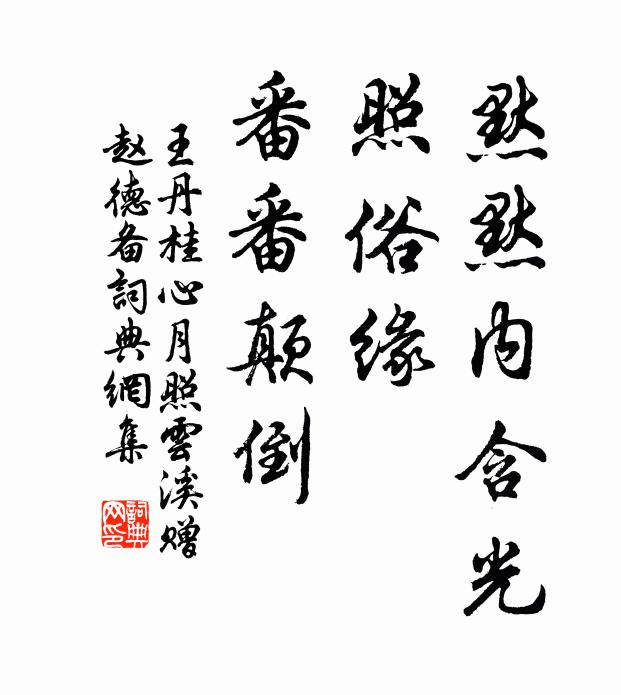 默默内含光
照俗缘
番番颠倒
王丹桂心月照雲溪赠
赵德备詞典網集
詞典
网印